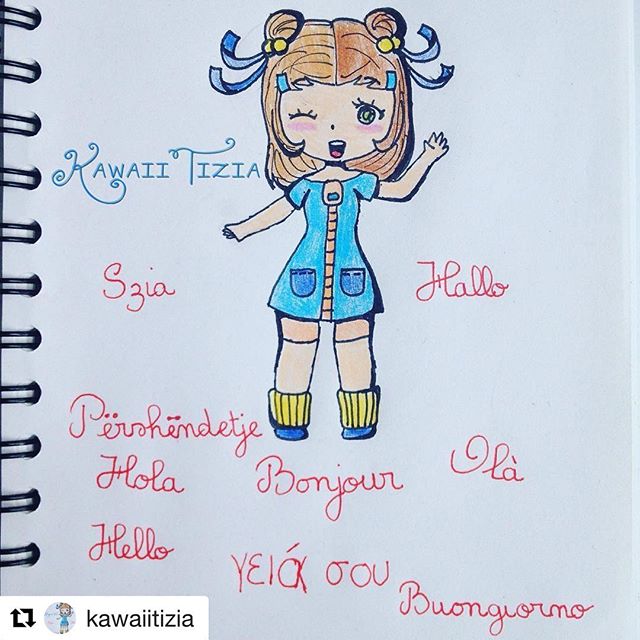 Kawaii Tizia
Szia
Hallo
Përshëndetje
Hola
Bonjour
Olà
Hello
γειά σου
Buongiorno
kawaiitizia